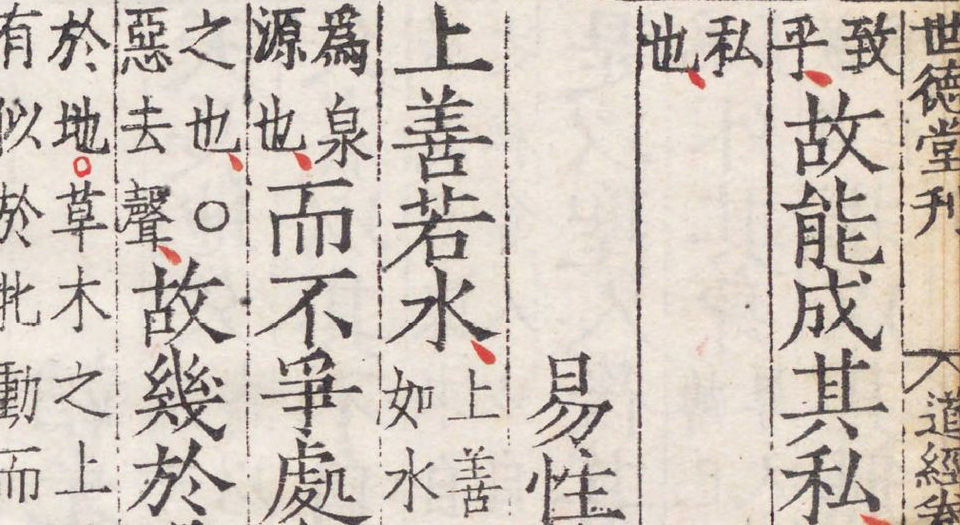 世德堂刋
道經
致
乎
故能成其私
私
也
易性
上善若水
上善
如水
爲泉
源也
而不爭處
之也○
惡去聲
故幾於
於地草木之上
有似於牝動而